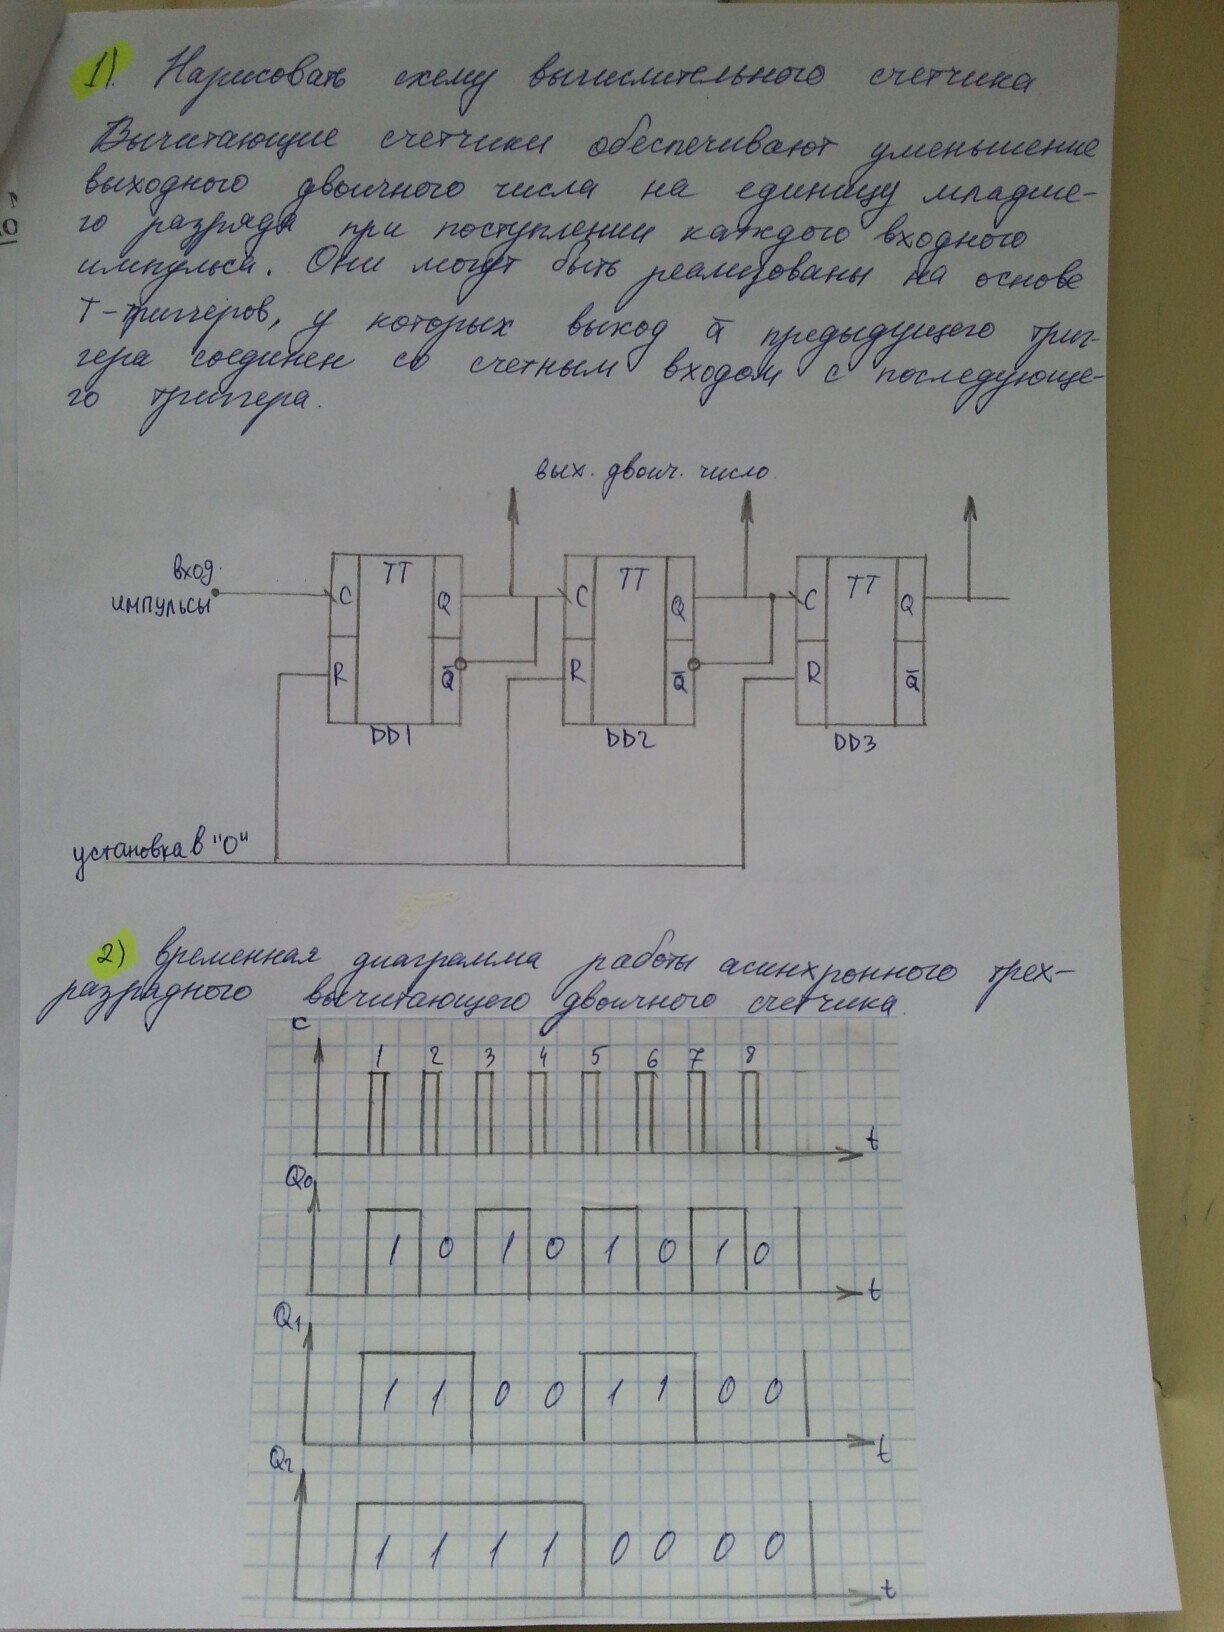 1). Нарисовать схему вычислительного счетчика
Вычитающие счетчики обеспечивают уменьшение
выходного двоичного числа на единицу младше-
го разряда при поступлении каждого входного
импульса. Они могут быть реализованы на основе
Т-триггеров, у которых выход q̄ предыдущего триг-
гера соединен со счетным входом с последующе-
го триггера.
вых. двоич. число
вход.
импульсы
C TT Q
R Q̄
DD1
C TT Q
R Q̄
DD2
C TT Q
R Q̄
DD3
установка в "0"
2) временная диаграмма работы асинхронного трех-
разрядного вычитающего двоичного счетчика.
C
1 2 3 4 5 6 7 8
t
Q0
1 0 1 0 1 0 1 0
t
Q1
1 1 0 0 1 1 0 0
t
Q2
1 1 1 1 0 0 0 0
t